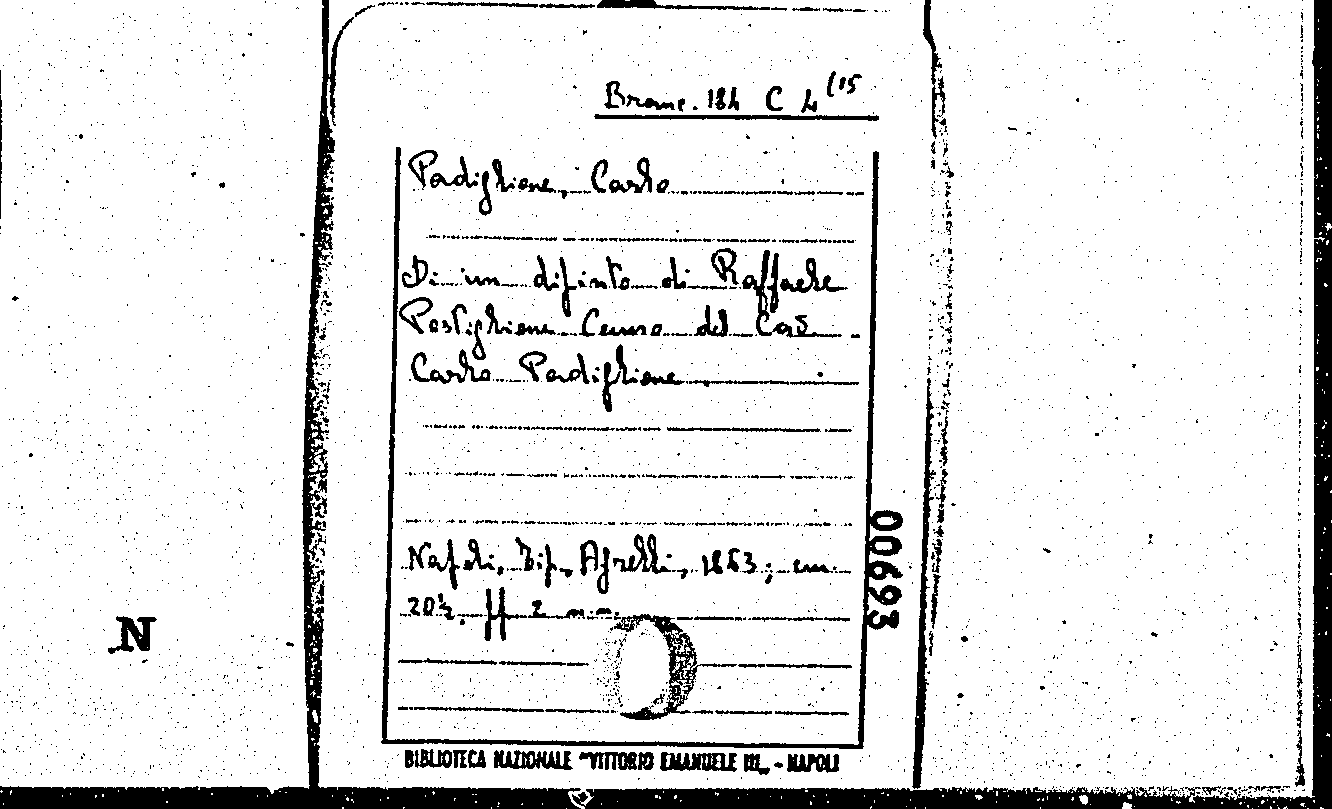 Branc. 184 C 4 (15
Padiglione, Carlo
Di un dipinto di Raffaele
Postiglione Cenno del Cav.
Carlo Padiglione.
Napoli, Tip. Agrelli, 1863; cm.
20½. ff 2 n.n.
00693
N
BIBLIOTECA NAZIONALE "VITTORIO EMANUELE III„ - NAPOLI